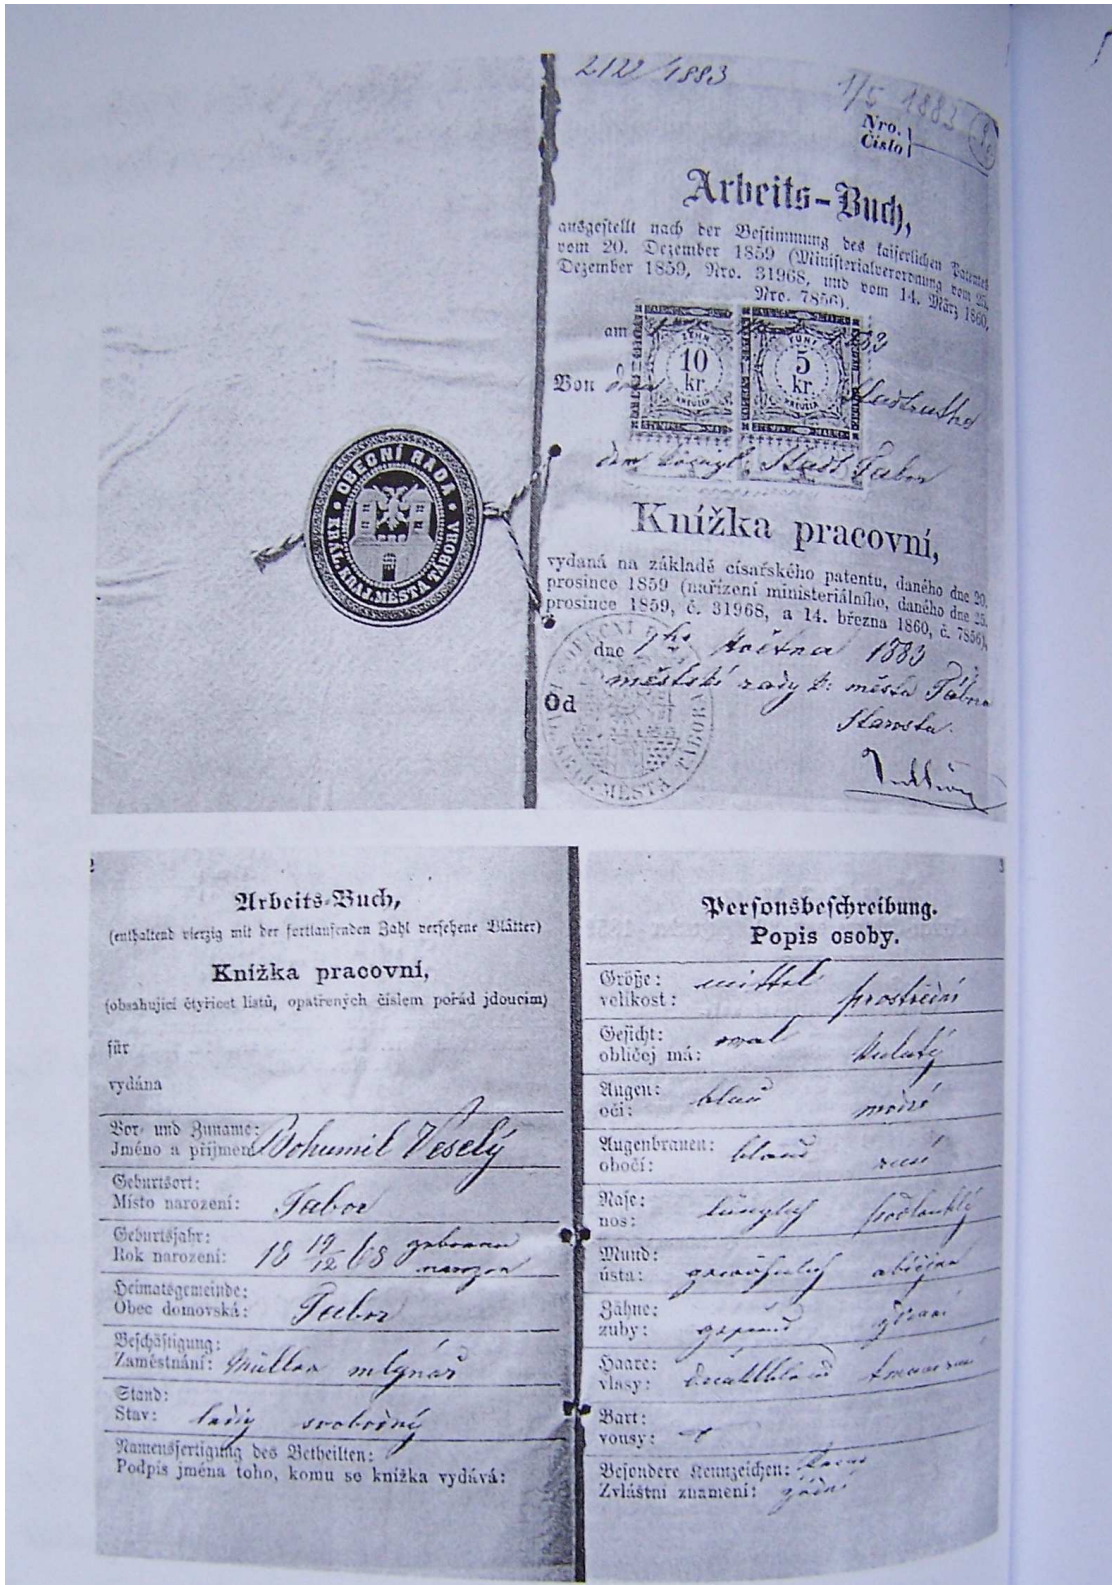 2122/1883
1/5 1883
Nro.
Číslo
Arbeits-Buch,
ausgestellt nach der Bestimmung des kaiserlichen Patentes
vom 20. Dezember 1859 (Ministerialverordnung vom 25.
Dezember 1859, Nro. 31968, und vom 14. März 1860,
Nro. 7856).
am 1883
ZEHN 10 kr. KREUZER
FÜNF 5 kr. KREUZER
STEMPEL MARKE
STEMPEL MARKE
Von dem Stadtrathe
der königl. Stadt Tabor
OBECNÍ RADA
KRÁL. KRAJ. MĚSTA TÁBORA
Knížka pracovní,
vydaná na základě císařského patentu, daného dne 20.
prosince 1859 (nařízení ministeriálního, daného dne 25.
prosince 1859, č. 31968, a 14. března 1860, č. 7856),
dne 1ho května 1883
Od městské rady k: města Tábora
Starosta.
OBECNÍ
KRAJ. MĚSTA TÁBORA
2
Arbeits-Buch,
(enthaltend vierzig mit der fortlaufenden Zahl versehene Blätter)
Knížka pracovní,
(obsahující čtyřicet listů, opatřených číslem pořád jdoucím)
für
vydána
Vor- und Zuname:
Jméno a příjmení Bohumil Veselý
Geburtsort:
Místo narození: Tabor
Geburtsjahr: geboren
Rok narození: 18 19/12 68 narozen
Heimatsgemeinde:
Obec domovská: Tabor
Beschäftigung:
Zaměstnání: Müller mlynář
Stand:
Stav: ledig svobodný
Namensfertigung des Betheilten:
Podpis jména toho, komu se knížka vydává:
3
Personsbeschreibung.
Popis osoby.
Größe: mittel
velikost: prostřední
Gesicht: oval
obličej má: kulatý
Augen: blau
oči: modré
Augenbrauen: blond
obočí: rusé
Nase: länglich
nos: podlouhlý
Mund:
ústa: gewöhnlich obyčejná
Zähne:
zuby: gesund zdravé
Haare:
vlasy: dunkelblond tmavorusé
Bart:
vousy:
Besondere Kennzeichen: keine
Zvláštní znamení: žádné